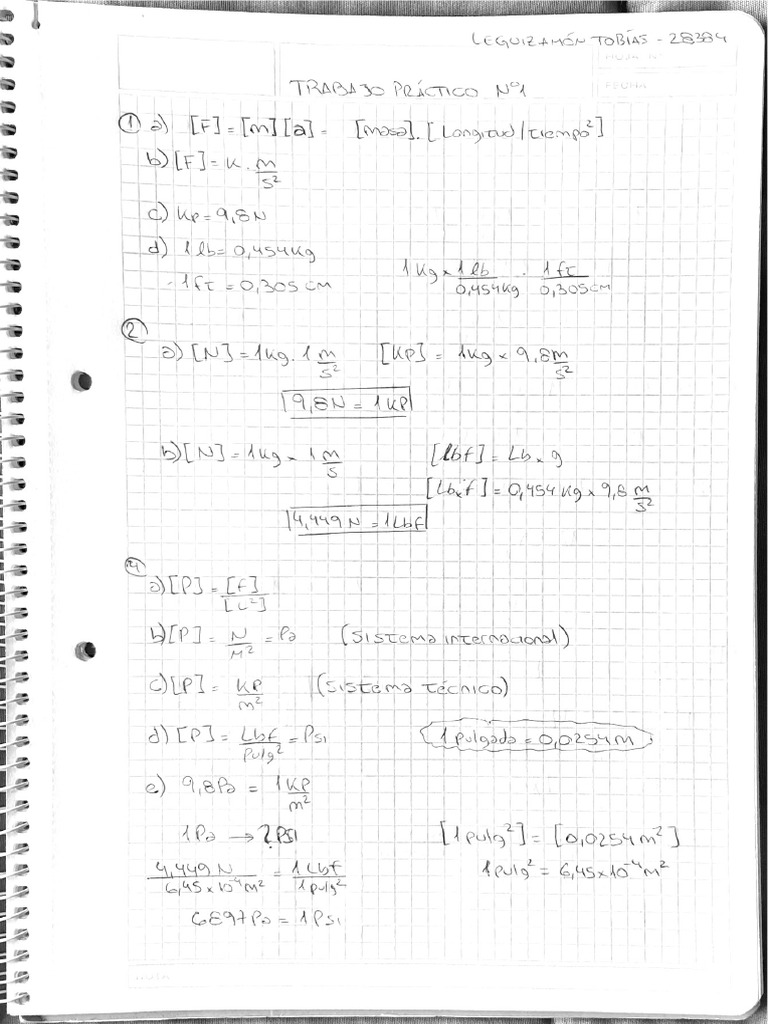 LEGUIZAMÓN TOBÍAS - 28384
FECHA
TRABAJO PRÁCTICO Nº1
① a) [F] = [m][a] = [masa].[Longitud/tiempo²]
b) [F] = K . m/s²
c) Kp = 9,8 N
d) 1 lb = 0,454 Kg
- 1 ft = 0,305 cm
1 Kg × 1 lb/0,454 Kg . 1 ft/0,305 cm
②
a) [N] = 1 Kg . 1 m/s² [Kp] = 1 Kg × 9,8 m/s²
9,8 N = 1 Kp
b) [N] = 1 Kg × 1 m/s [lbf] = Lb × g
[Lb×f] = 0,454 Kg × 9,8 m/s²
4,449 N = 1 Lbf
④
a) [P] = [f]/[L²]
b) [P] = N/M² = Pa (sistema internacional)
c) [P] = KP/m² (sistema técnico)
d) [P] = Lbf/Pulg² = Psi 1 pulgada = 0,0254 M
e) 9,8 Pa = 1 KP/m²
1 Pa → ? PSI [1 pulg²] = [0,0254 m²]
4,449 N/6,45×10⁻⁴ m² = 1 Lbf/1 pulg² 1 pulg² = 6,45×10⁻⁴ m²
6897 Pa = 1 Psi